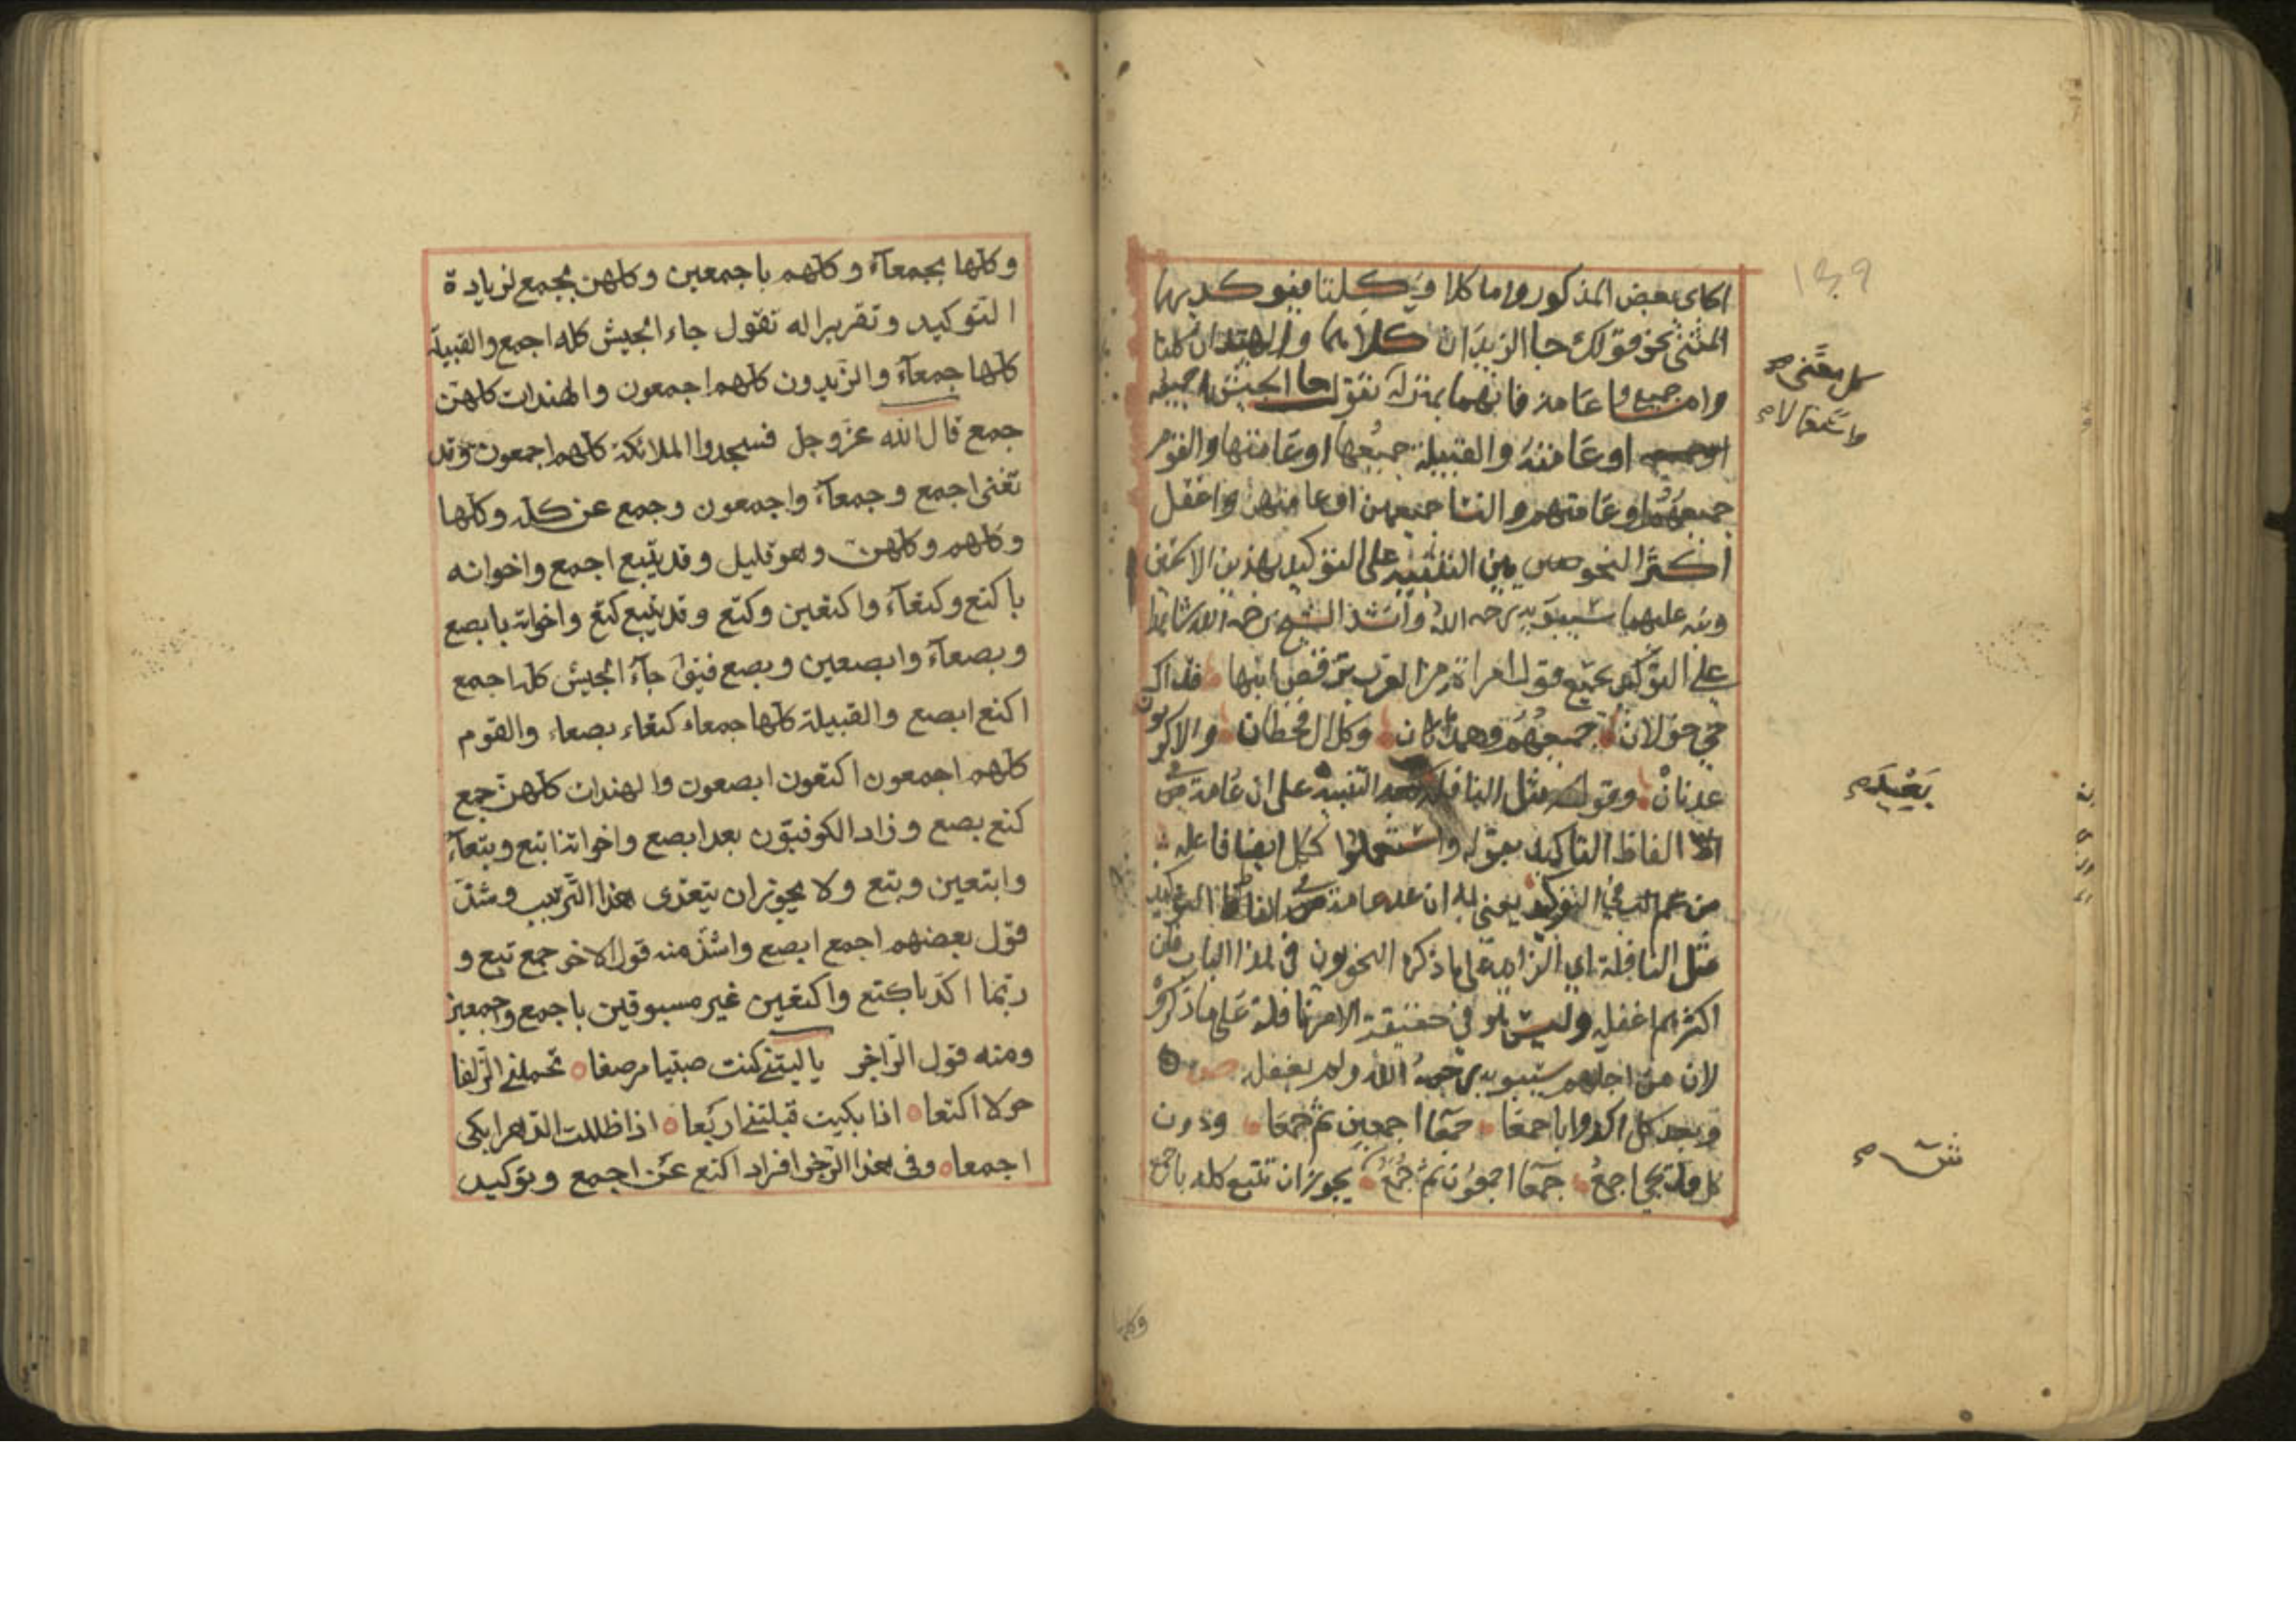 ١٣٩
اكاى بعض المذكور واما كلا وكلتا فيوكد بهما
المثنى نحو قولك جا الزيدان كلاهما والهندان كلتا
واما جميع وعامة فانهما بمنزلة تقول جا الجيش جميعه
كل معنى م
واستعمالا م
او عامته والقبيلة جميعها او عامتها والقوم
جميعهم او عامتهم والنسا جميعهن او عامتهن واغفل
اكثر النحويين التنبيه على التوكيد بهذين الاسمين
ونبه عليهما سيبويه رحمه الله وانشد الشيخ رحمه الله شاهدا
على التوكيد بجميع قول امراة من العرب ترقص ابنها فداك
حي خولان جميعهم وهمدان وكل ال قحطان والاكرمون
عدنان وقوله مثل النافلة بعد التنبيه على ان عامة من
بعيد م
الفاظ التاكيد بقوله واستعملوا ككل ايضا فاعله
من عم في التوكيد يعنى به ان عد عامة من الفاظ التوكيد
مثل النافلة اي الزايد على ما ذكره النحويون في هذا الباب فان
اكثرهم اغفله وليس هو في حقيقة الامر نافلة على ما ذكروه
لان من اجلهم سيبويه رحمه الله ولم يغفله ص
وبعد كل اكدوا باجمعا جمعا اجمعين ثم جمعا ودون
ش م
كل قد يجي اجمع جمعا اجمعون ثم جمع يجوز ان تتبع كله باجمع
وكلها
وكلها بجمعآء وكلهم باجمعين وكلهن بجمع لزيادة
التوكيد وتقريرا له تقول جاء الجيش كله اجمع والقبيلة
كلها جمعآء والزيدون كلهم اجمعون والهندات كلهن
جمع قال الله عز وجل فسجدوا الملائكة كلهم اجمعون وقد
تغنى اجمع وجمعآء واجمعون وجمع عن كله وكلها
وكلهم وكلهن وهو قليل وقد يتبع اجمع واخواته
باكتع وكتعآء واكتعين وكتع وقد يتبع كتع واخواته بابصع
وبصعآء وابصعين وبصع فيقال جآء الجيش كله اجمع
اكتع ابصع والقبيلة كلها جمعاء كتعاء بصعاء والقوم
كلهم اجمعون اكتعون ابصعون والهندات كلهن جمع
كتع بصع وزاد الكوفيون بعد ابصع واخواتها ابتع وبتعآء
وابتعين وبتع ولا يجوز ان يتعدى هذا الترتيب وشذ
قول بعضهم اجمع ابصع واشذ منه قول الاخر جمع تبع و
ربما اكد باكتع واكتعين غير مسبوقين باجمع واجمعين
ومنه قول الراجز يا ليتنى كنت صبيا مرضعا تحملنى الزلفا
حولا اكتعا اذا بكيت قبلتنى اربعا اذا ظللت الدهر ابكى
اجمعا وفى هذا الرجز افراد اكتع عن اجمع وتوكيد